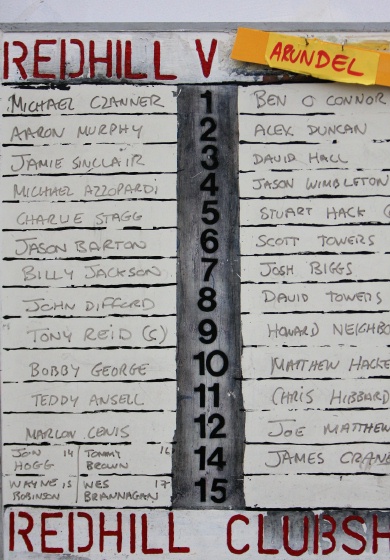 REDHILL V ARUNDEL
MICHAEL CZANNER 1 BEN O CONNOR
AARON MURPHY 2 ALEX DUNCAN
JAMIE SINCLAIR 3 DAVID HALL
MICHAEL AZZOPARDI 4 JASON WIMBLETON
CHARLIE STAGG 5 STUART HACK
JASON BARTON 6 SCOTT TOWERS
BILLY JACKSON 7 JOSH BIGGS
JOHN DIFFORD 8 DAVID TOWERS
TONY REID (S) 9 HOWARD NEIGHBO
BOBBY GEORGE 10 MATTHEW HACKE
TEDDY ANSELL 11 CHRIS HIBBARD
MARLON LEWIS 12 JOE MATTHEW
JON HOGG 14 TOMMY BROWN 16 14 JAMES CRANE
WAYNE ROBINSON 15 WES BRANNAGAN 17 15
REDHILL CLUBSH